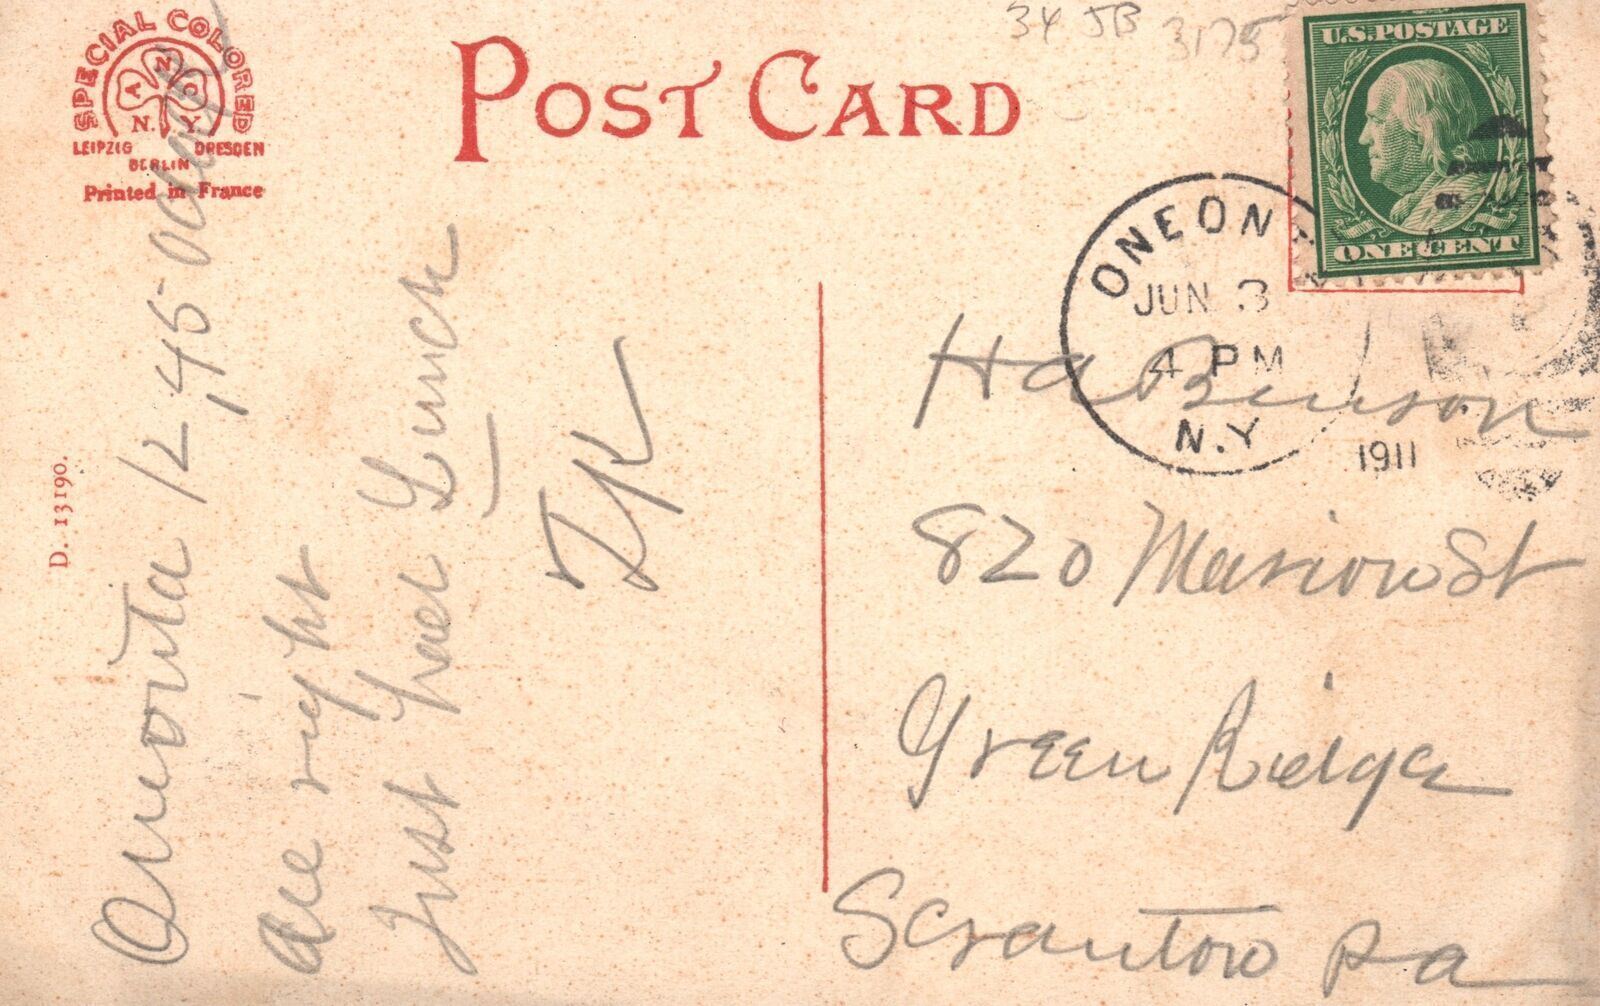 34 JB 3175
SPECIAL COLORED
A N C
N. Y.
LEIPZIG DRESDEN
BERLIN
Printed in France
POST CARD
U.S.POSTAGE
ONE CENT
ONEONTA
JUN 3
4 PM
N.Y.
1911
D. 13190.
Oneonta 12,45
all right
Just had Lunch
Ha Benson
820 Marion St
Green Ridge
Scranton Pa